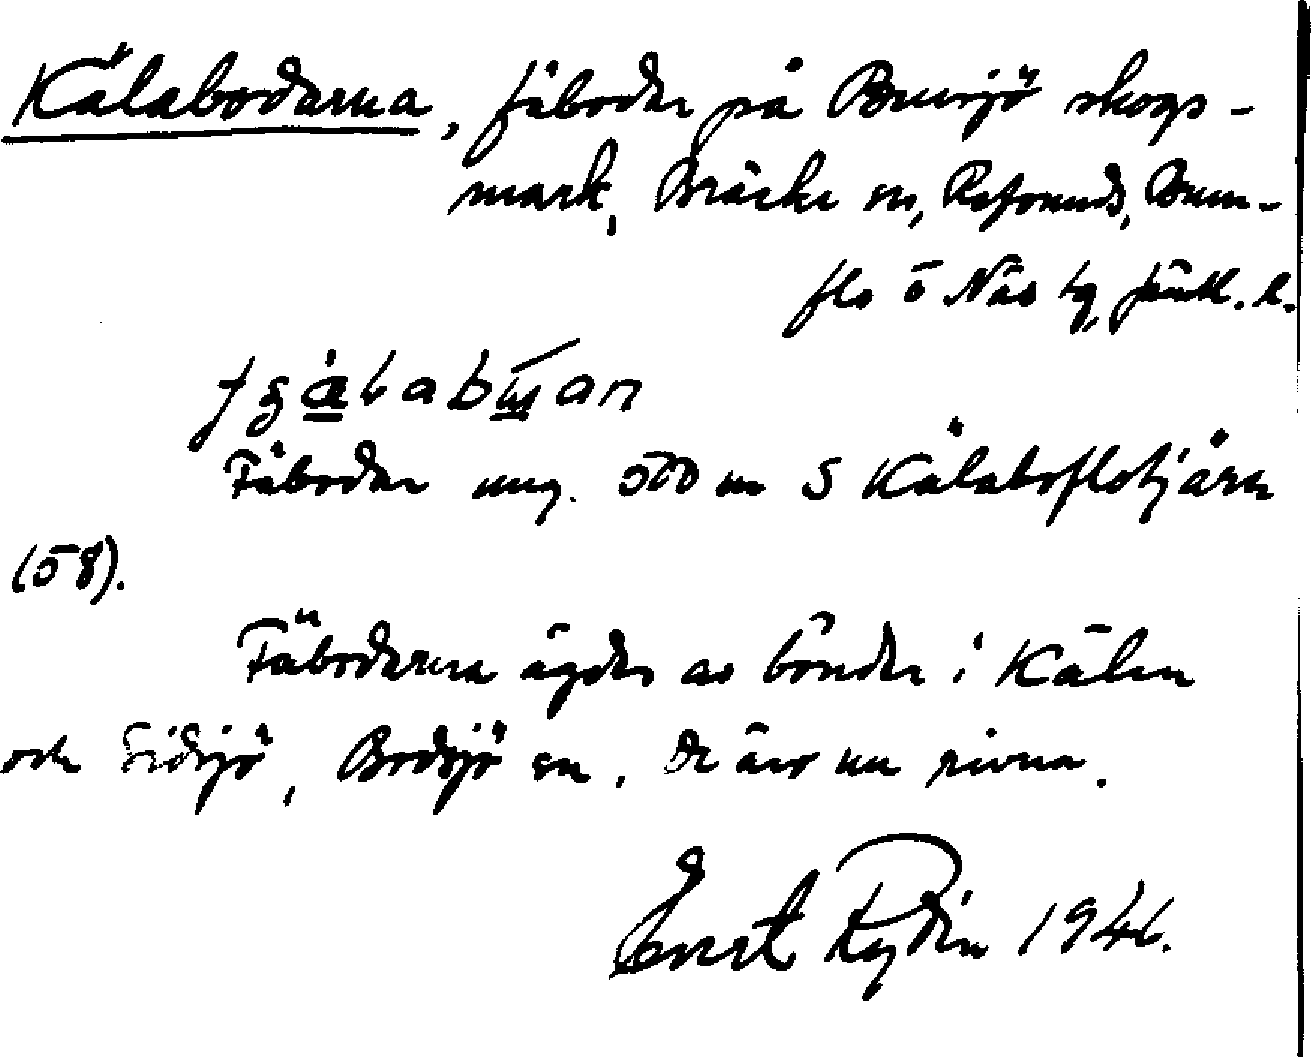 Kälabodarna, fäbodar på Bensjö skogs-
mark, Bräcke sn, Refsunds, Brun-
flo o Näs tg, Jämtl. l.
Fäbodar ung. 500 m S Kälaboflotjärn
(58).
Fäbodarna ägdes av bönder i Kälen
och Sidsjö, Bodsjö sn. De äro nu rivna.
Ernst Rydin 1946.